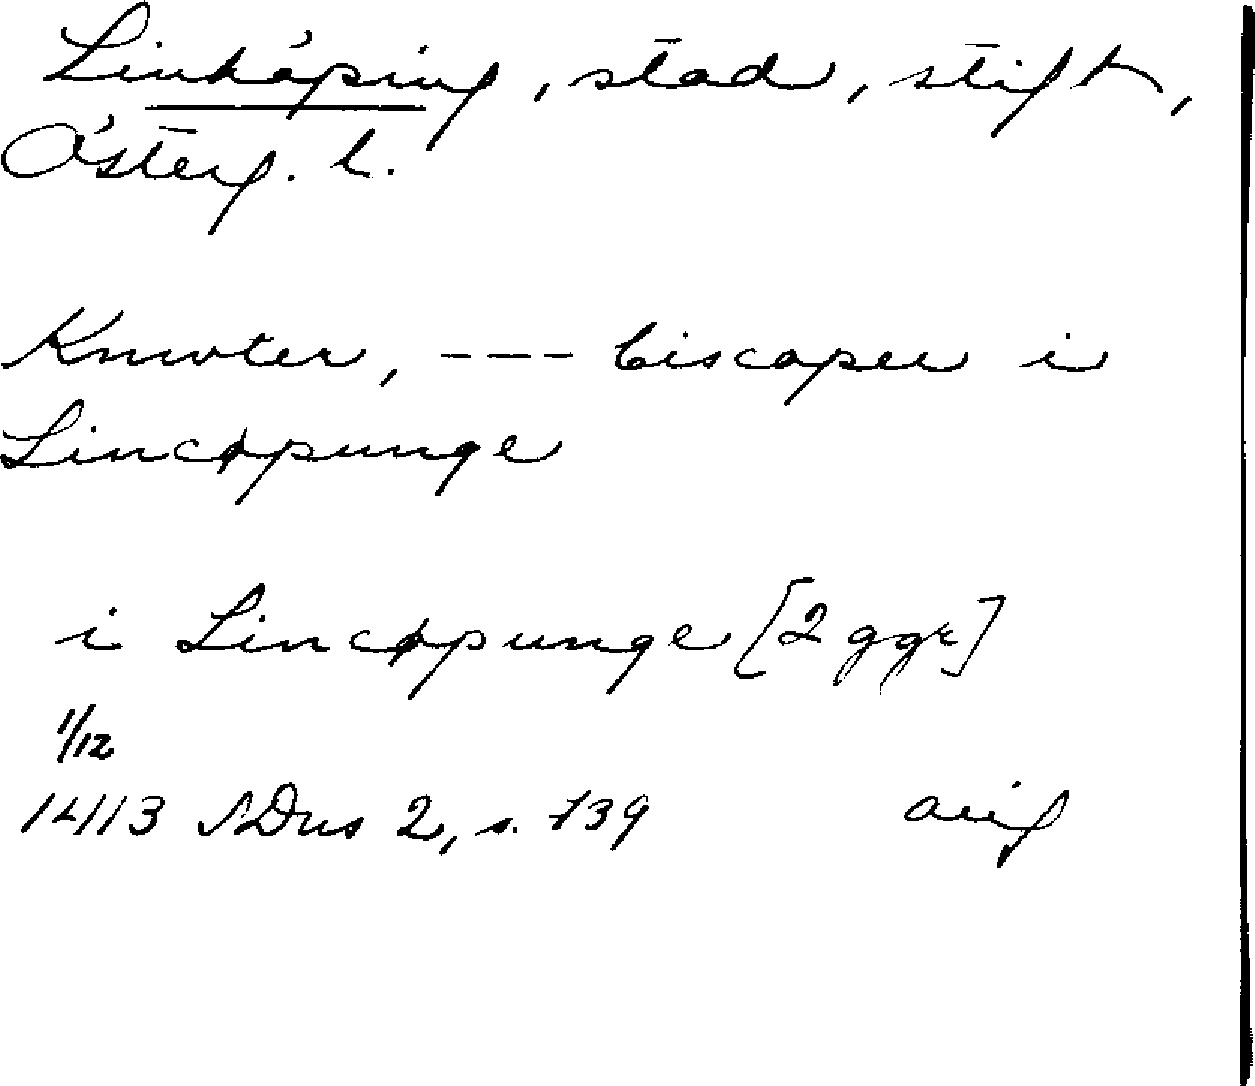 Linköping, stad, stift,
Österg. l.
Knwter, --- biscoper i
Lincøpunge
i Lincøpunge [2 ggr]
1/12
1413 SDns 2, s. 739 orig